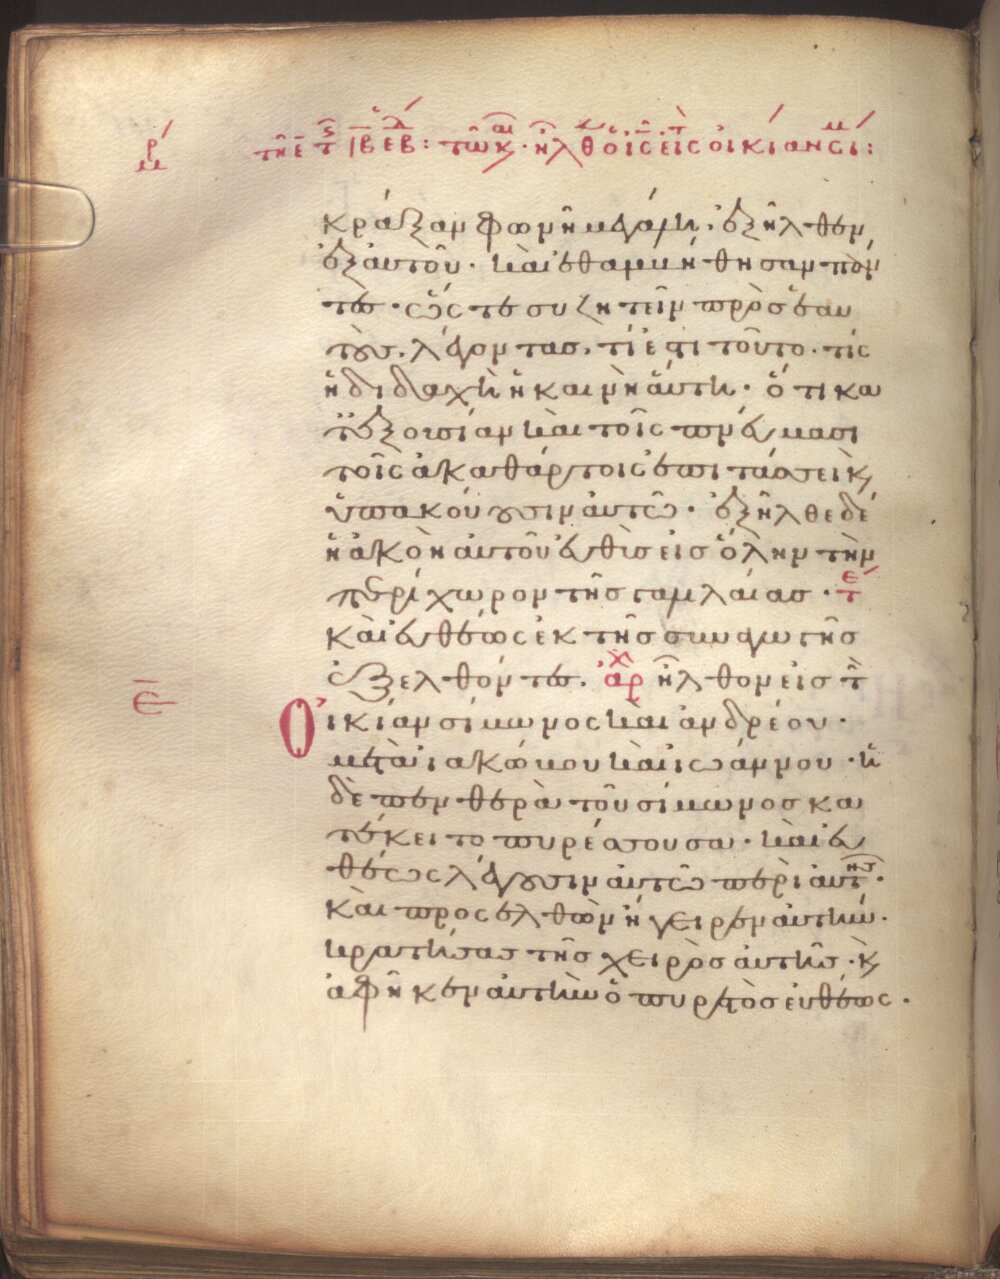 κράξαν φωνῆ μεγάλη, ἐξῆλθεν
ἐξ αυτοῦ · καὶ ἐθαμβήθησαν πάν
τες · ὥστε συζητεῖν πρὸς ἑαυ
τοὺς, λέγοντας, τί ἐστι τοῦτο · τίς
ἡ διδαχὴ ἡ καινὴ ἅυτη · ὅτι κα
τ᾽ἐξουσίαν καὶ τοῖς πνεύμασι
τοῖς ἀκαθάρτοις ἐπιτάσσει κ,
ὑπακόυουσιν ἀυτῶ · ἐξῆλθε δὲ
ἡ ἀκοὴ αυτοῦ ἐυθὺς εἰς ὅλην τὴν
περίχωρον τῆς γαλιλάιας ·
καὶ ἐυθέως ἐκ τῆς συναγωγῆς
ἐξελθόντες, ἀρχ ἦλθον εἰς τ
Οἰκίαν σίμωνος καὶ ἀνδρέου ·
μετὰ ἰακώβου καὶ ἰωάννου · ἡ
δὲ πενθερὰ τοῦ σίμωνος κα
τέκειτο πυρέσσουσα · καὶ ἐυ
θέως λέγουσιν ἀυτῶ περὶ αυτῆς ·
καὶ προσελθὼν ἤγειρεν ἀυτὴν ·
κρατήσας τῆς χειρὸς ἀυτῆς · κ,
ἀφῆκεν ἀυτὴν ὁ πυρετὸς ἐυθέως ·